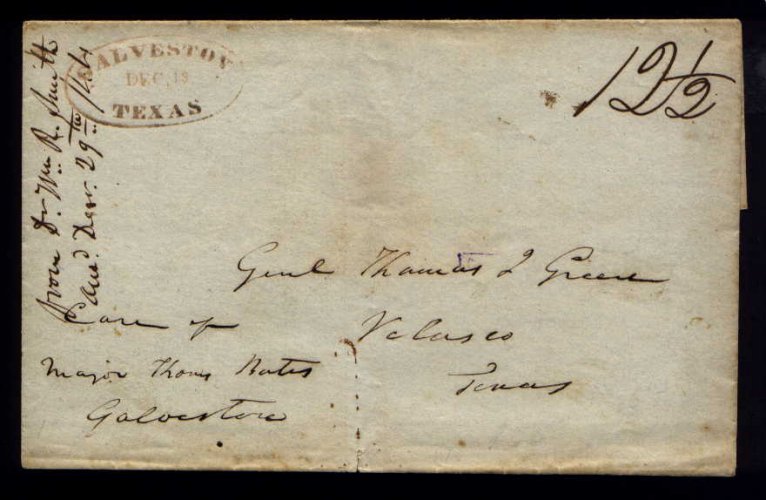 GALVESTON
DEC. 19
TEXAS
12½
from Dr. Wm. R. Smith
Ansd. Decr. 29th
Genl Thomas J Green
Velasco
Texas
Care of
Major Thoms Bates
Galveston